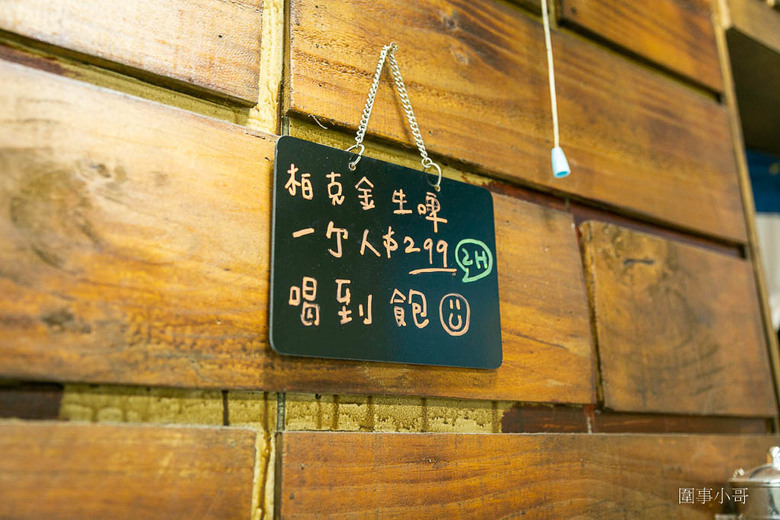 柏克金生啤
一个人$299 2H
喝到飽
圍事小哥